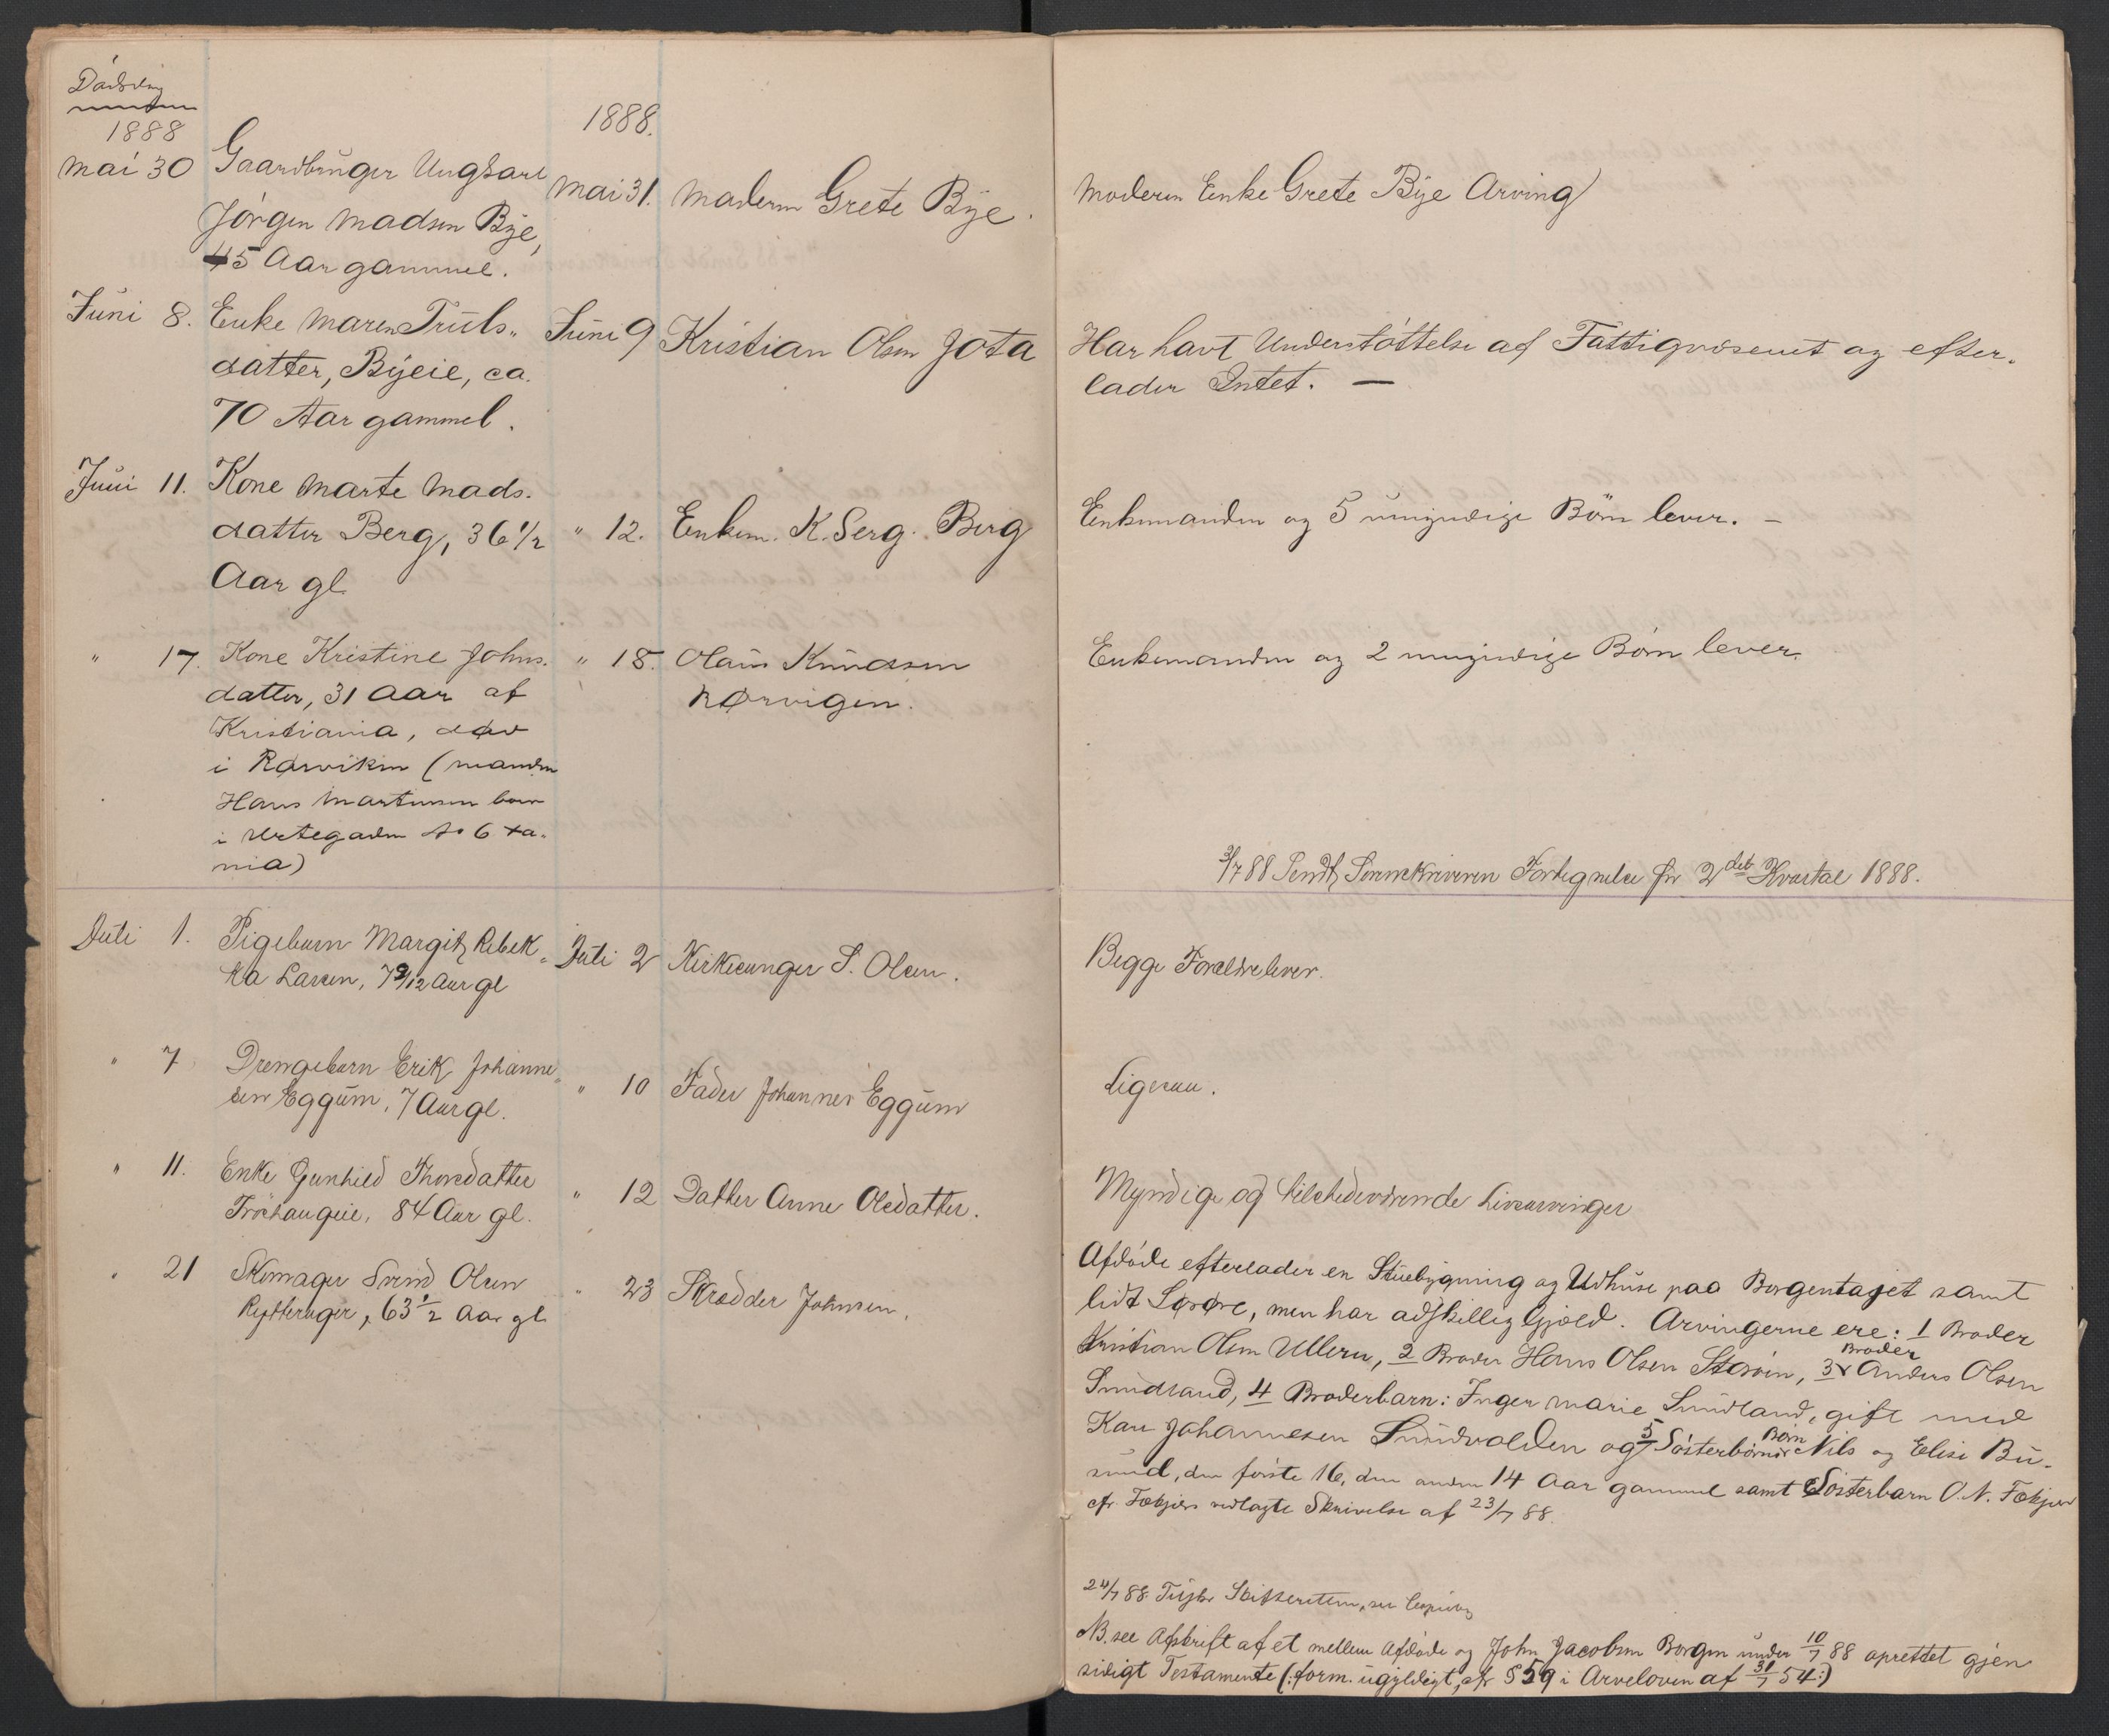 1888
1888.
Mai 30
Gaardbruger Ungkarl
Jörgen Madsen Bye,
45 Aar gammel.
Mai 31.
Moderen Grete Bye.
Moderen Enke Grete Bye Arving
Juni 8.
Enke Maren Truls-
datter, Byeie, ca.
70 Aar gammel.
Juni 9
Kristian Olsen Jota
Har havt Understöttelse af Fattigvæsenet og efter-
lader Intet. —
Juni 11.
Kone Marte Mads-
datter Berg, 36 1/2
Aar gl.
" 12.
Enkem. K. Serg. Berg
Enkemanden og 5 umyndige Börn lever. —
" 17.
Kone Kristine Johns-
datter, 31 Aar af
Kristiania, død
i Rørviken (manden
Hans Martinsen bor
i Urtegaden No 6 Xa-
nia)
" 18.
Olaus Knudssen
Rørvigen.
Enkemanden og 2 umyndige Börn lever.
3/7 88 Sendt Sorenskriveren Fortegnelse for 2det Kvartal 1888.
Juli 1.
Pigebarn Margit Rebek-
ka Larsen, 7 9/12 Aar gl
Juli 2
Kirkesanger S. Olsen.
Begge Forældre lever.
" 7
Drengebarn Erik Johanne-
sen Eggum, 7 Aar gl.
" 10
Fader Johannes Eggum
Ligesaa.
" 11.
Enke Gunhild Thorsdatter
Fröshaugeie, 84 Aar gl.
" 12
Datter Anne Olsdatter.
Myndige og tilstedeværende Livsarvinger
" 21
Skomager Svend Olsen
Rytterager, 63 1/2 Aar gl
" 23
Skrædder Johnsen.
Afdöde efterlader en Stuebygning og Udhuse paa Borgentajet samt
lidt Løsøre, men har adskillig Gjæld. Arvingerne ere: 1 Broder
Kristian Olsen Ullern, 2 Broder Hans Olsen Steröen, 3 Broder Anders Olsen
Sundland, 4 Broderbarn: Inger Marie Sundland, gift med
Kari Johannesen Sundvolden og 5 Sösterbörns Börn Nils og Elise Bu-
sund, den förste 16, den anden 14 Aar gammel samt Sösterbarn O. N. Fækjær
cfr Fækjærs vedlagte Skrivelse af 23/7 88.
24/7 88 Skifteretten, se Copiebog
NB. see Afskrift af et mellem Afdöde og John Jacobsen Borgen under 10/7 88 oprettet gjen
sidigt Testamente (: form. ugyldigt, cfr § 59 i Arveloven af 31/7 54:)